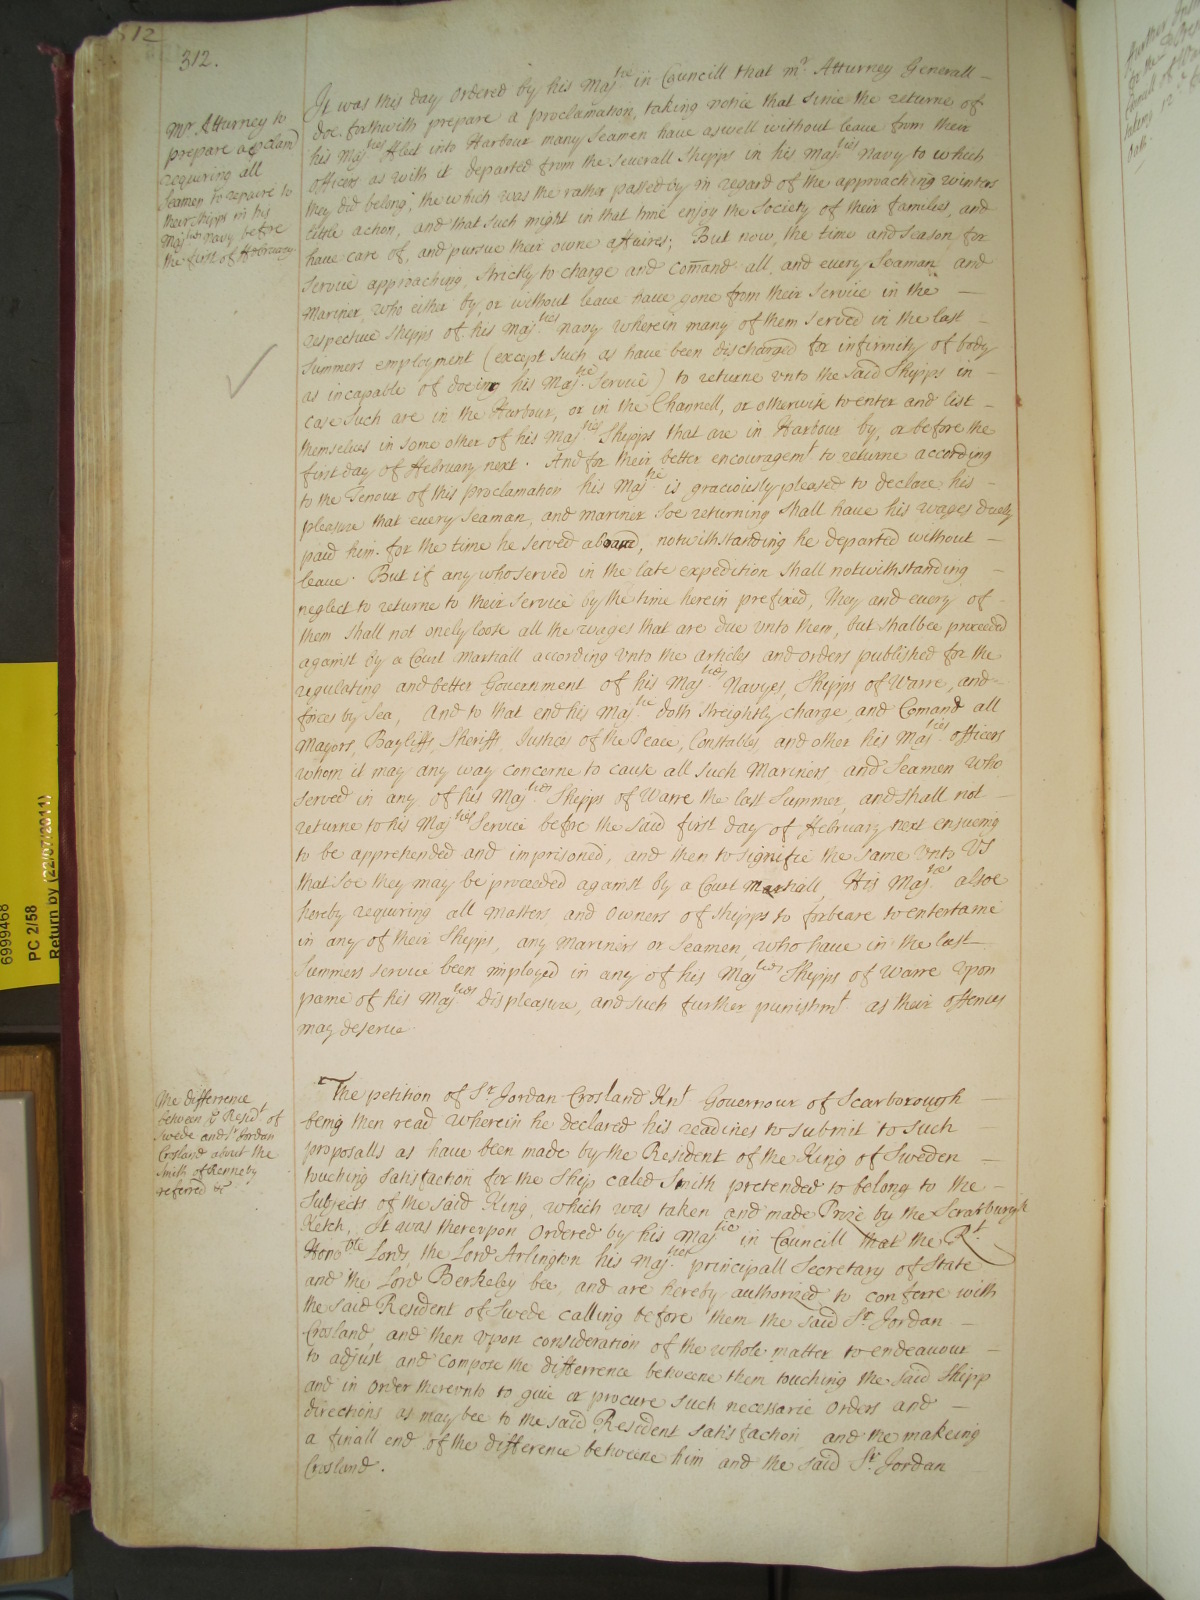 312.
12
Mr. Atturney to
prepare a p̱clam̃
requering all
Seamen to repaire to
their Shipps in his
Maj:ties Navy before
the first of ffebruary
It was this day Ordered by his Maj:tie in Councill that mr. Atturney Generall
doe forthwith prepare a proclamation, taking notice that since the returne of
his Maj:ties ffleet into Harbour many Seamen have aswell without leave from their
officers as with it departed from the severall Shipps in his Maj:ties Navy to which
they did belong; the which was the rather passed by in regard of the approaching winters
little action, and that such might in that time enjoy the Society of their families, and
have care of, and pursue their owne affaires; But now, the time and season for
Service approaching, strictly to charge and com̃and all, and every Seaman and
Mariner, who either by, or without leave have gone from their Service in the
respective Shipps of his Maj:ties navy wherein many of them Served in the last
Summers employment (except such as have been discharged for infirmity of body
as incapable of doeing his Maj:tie Service) to returne vnto the said Shipps in
case Such are in the Harbour, or in the Channell, or otherwise to enter and list
themselves in some other of his Maj:ties Shipps that are in Harbour by, or before the
first day of ffebruary next. And for their better encouragemt. to returne according
to the Tenour of this proclamation his Maj:tie is graciously pleased to declare his
pleasure that every Seaman, and mariner soe returning shall have his wages duely
paid him for the time he served aboard, notwithstanding he departed without
leave. But if any who served in the late expedition shall notwithstanding
neglect to returne to their Service by the time herein prefixed, They and every of
them shall not onely loose all the wages that are due vnto them, but shalbee proceeded
against by a Court Marshall according vnto the articles and orders published for the
regulating and better Government of his Maj:ties Navyes, Shipps of Warre, and
forces by Sea, And to that end his Maj:tie doth streightly charge and Comand all
Mayors, Bayliffs, Sheriffs, Justices of the Peace, Constables, and other his Maj:ties officers
whom it may any way concerne to cause all such Mariners and Seamen who
served in any of his Maj:ties Shipps of Warre the last Summer, and shall not
returne to his Maj:ties Service before the said first day of ffebruary next ensueing
to be apprehended and imprisoned, and then to signifie the same vnto VS
that soe they may be proceeded against by a Court Marshall His Maj:ties alsoe
hereby requiring all Masters and Owners of Shipps to forbeare to entertaine
in any of their Shipps, any Mariners or Seamen, who have in the last
Summers service been imployed in any of his Maj:ties Shipps of Warre vpon
paine of his Maj:ties displeasure, and such further punishmt. as their offences
may deserve
The difference
between ye Residt. of
Swede and Sr. Jordan
Crosland about the
Smith of Kenneby
referred &c
The petition of Sr. Jordan Crosland Knt. Governour of Scarborough
being then read wherein he declared his readines to submit to such
proposalls as have been made by the Resident of the King of Sweden
touching satisfaction for the Ship called Smith pretended to belong to the
Subjects of the said King, which was taken and made Prize by the Scarburgh
Ketch, It was therevpon Ordered by his Maj:tie in Councill that the Rt.
Honoble Lords, the Lord Arlington his Maj:ties principall Secretary of State
and the Lord Berkeley bee, and are hereby authorized to conferre with
the said Resident of Swede calling before them the said Sr. Jordan
Crosland, and then vpon consideration of the whole matter to endeavour
to adjust and compose the difference betweene them touching the said Shipp
and in Order therevnto to give or procure such necessarie orders and
directions as may bee to the said Resident satisfaction and the makeing
a finall end of the difference betweene him and the said Sr. Jordan
Crosland.
6999468
PC 2/58
Return by (22/07/2011)